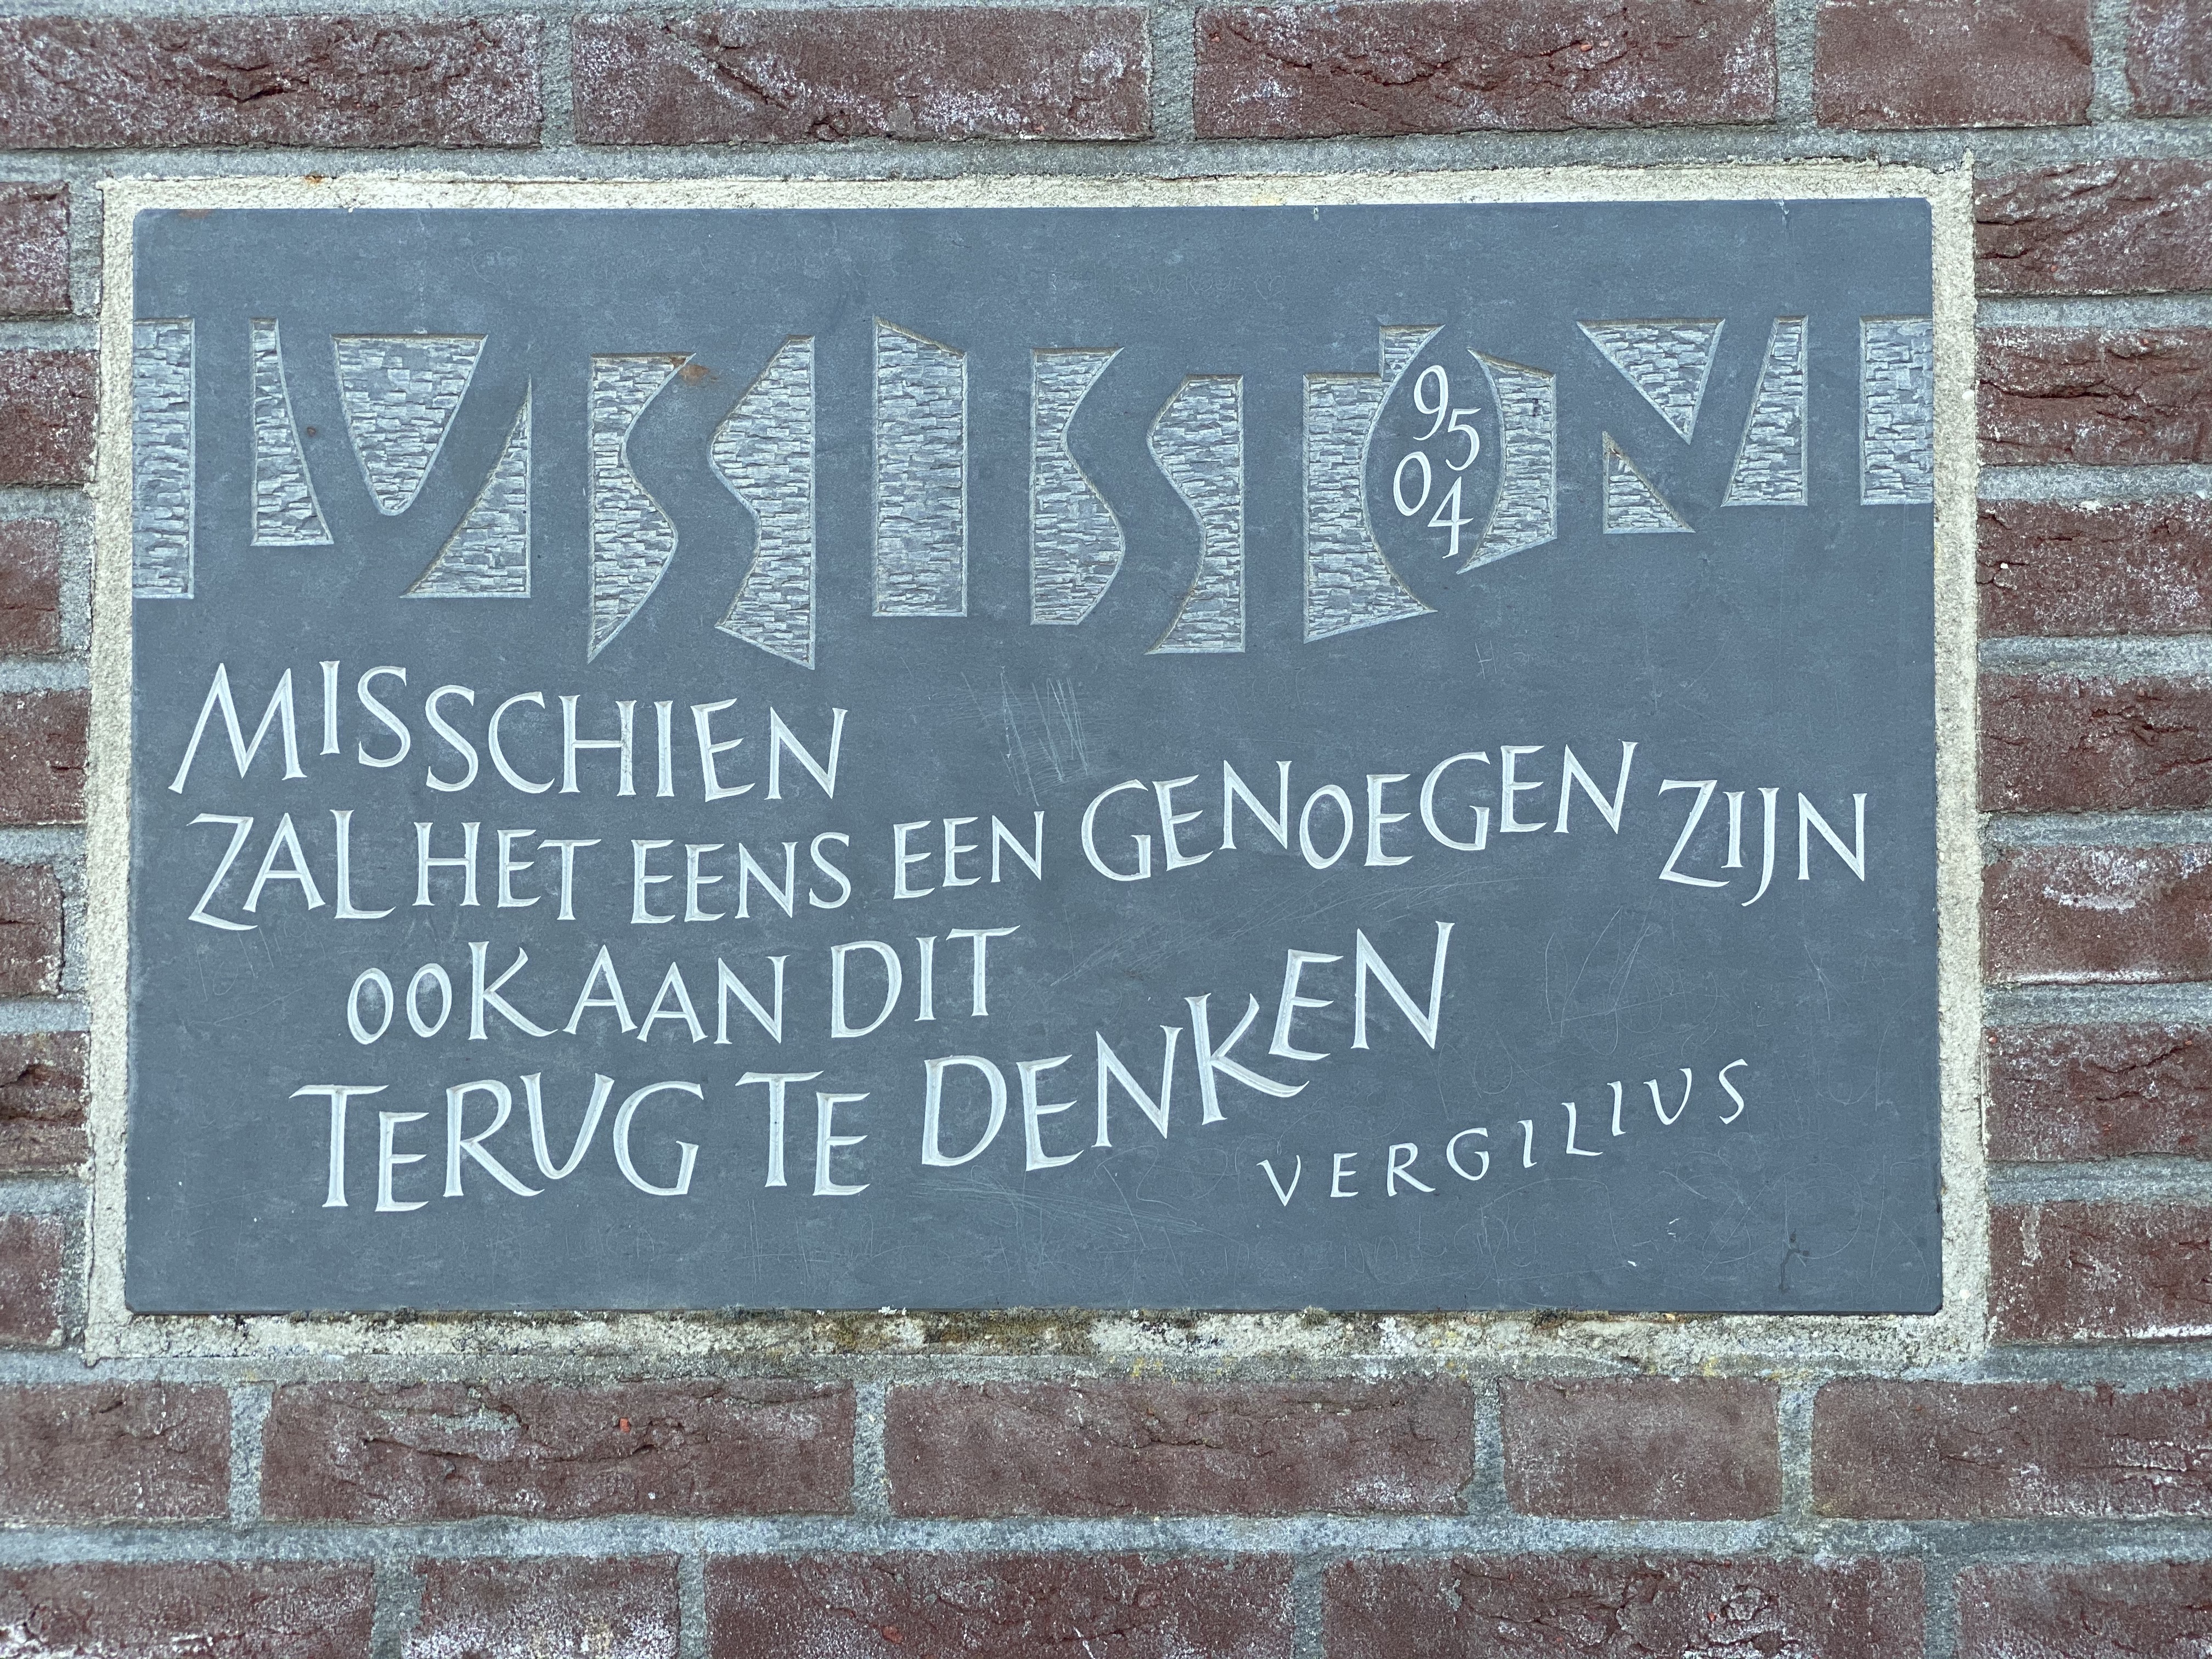 95
04
MISSCHIEN
ZAL HET EENS EEN GENOEGEN ZIJN
OOK AAN DIT
TERUG TE DENKEN
VERGILIUS